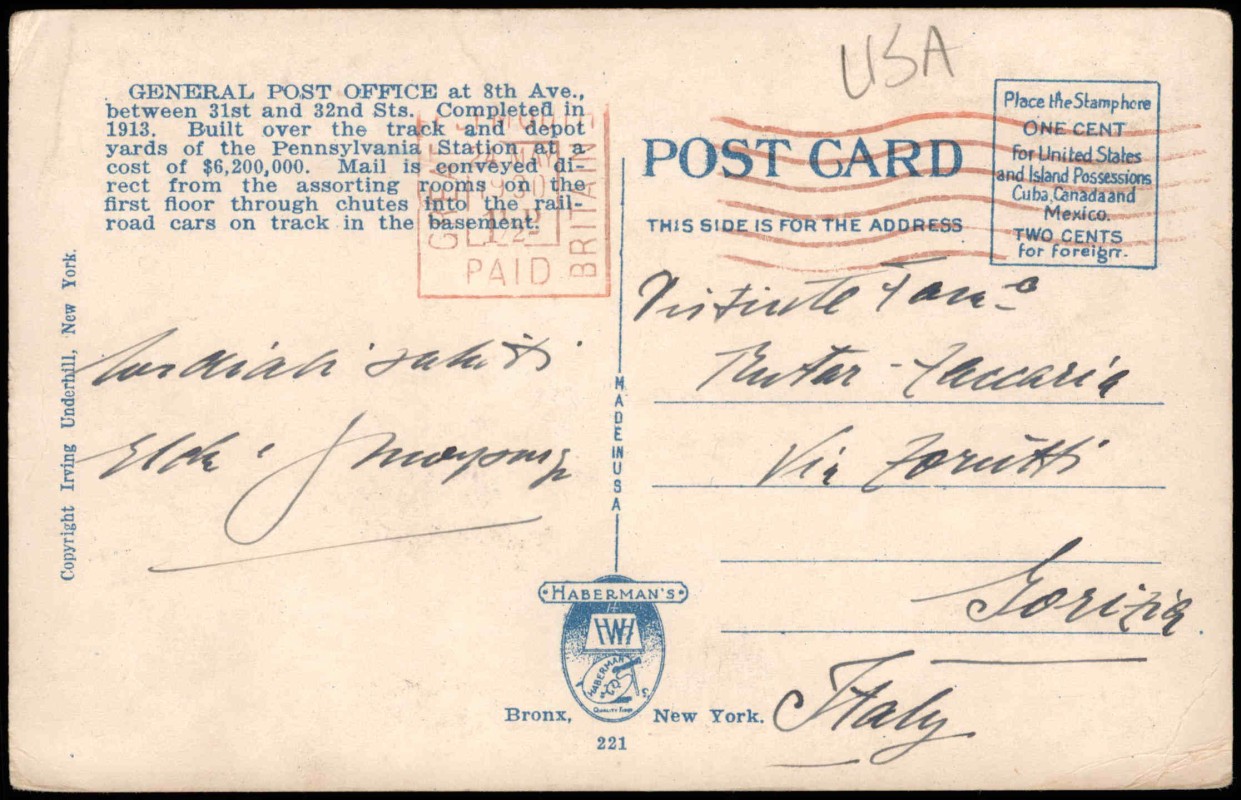 USA
GENERAL POST OFFICE at 8th Ave.,
between 31st and 32nd Sts. Completed in
1913. Built over the track and depot
yards of the Pennsylvania Station at a
cost of $6,200,000. Mail is conveyed di-
rect from the assorting rooms on the
first floor through chutes into the rail-
road cars on track in the basement.
GREAT BRITAIN
1930
PAID
POST CARD
THIS SIDE IS FOR THE ADDRESS
Place the Stamp here
ONE CENT
For United States
and Island Possessions
Cuba, Canada and
Mexico.
TWO CENTS
for foreign.
Copyright Irving Underhill, New York.
Cordiali saluti
MADE IN USA
Zaccaria
Via Zorutti
Gorizia
Italy
HABERMAN'S
HABERMAN
QUALITY
Bronx, New York.
221